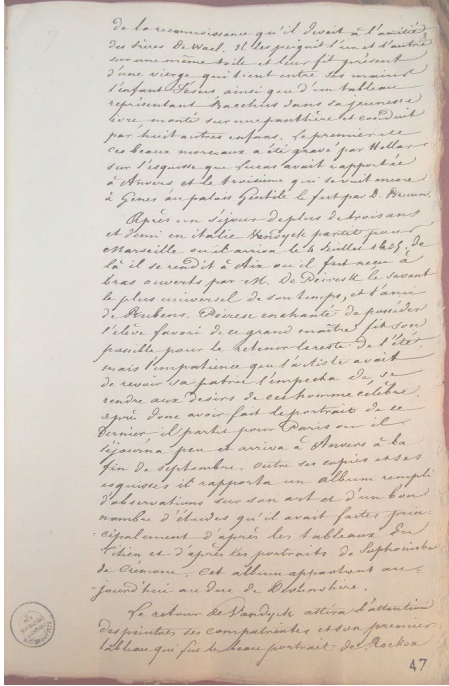 de la reconnaissance qu'il devait à l'amitié
des frères De Wael. Il les peignit l'un et l'autre
sur une même toile et leur fit présent
d'une vierge qui tient entre ses mains
l'enfant Jésus, ainsi que d'un tableau
représentant Bacchus dans sa jeunesse
ivre monté sur une panthère et conduit
par huit autres enfans. Le premier de
ces beaux morceaux a été gravé par Hollar
sur l'esquisse que Lucas avait rapportée
à Anvers, et le troisième qui se voit encore
à Gênes au palais Gentile le fut par
Après un séjour de plus de trois ans
et demi en italie Vandyck partit pour
Marseille où il arriva le 4 Juillet 1625, de
là il se rendit à Aix où il fut reçu à
bras ouverts par M. De Peiresk le savant
le plus universel de son temps, et l'ami
de Rubens. Peiresc enchanté de posséder
l'élève favori de ce grand maître fit son
possible pour le retenir le reste de l'été
mais l'impatience que l'artiste avait
de revoir sa patrie l'empecha de se
rendre aux désirs de cet homme célèbre.
après donc avoir fait le portrait de ce
dernier il partit pour Paris où il
séjourna peu et arriva à Anvers à la
fin de septembre. outre ses copies et ses
esquisses il rapporta un album rempli
d'observations sur son art et d'un bon
nombre d'études qu'il avait faites prin-
-cipalement d'après les tableaux du
Titien et d'après les portraits de Sophonisbe
de Crémone. Cet album appartient au-
-jourd'hui au duc de Devonshire.
Le retour de Vandyck attira l'attention
des peintres ses compatriotes et son premier
tableau qui fut le beau portrait de Rockox
47